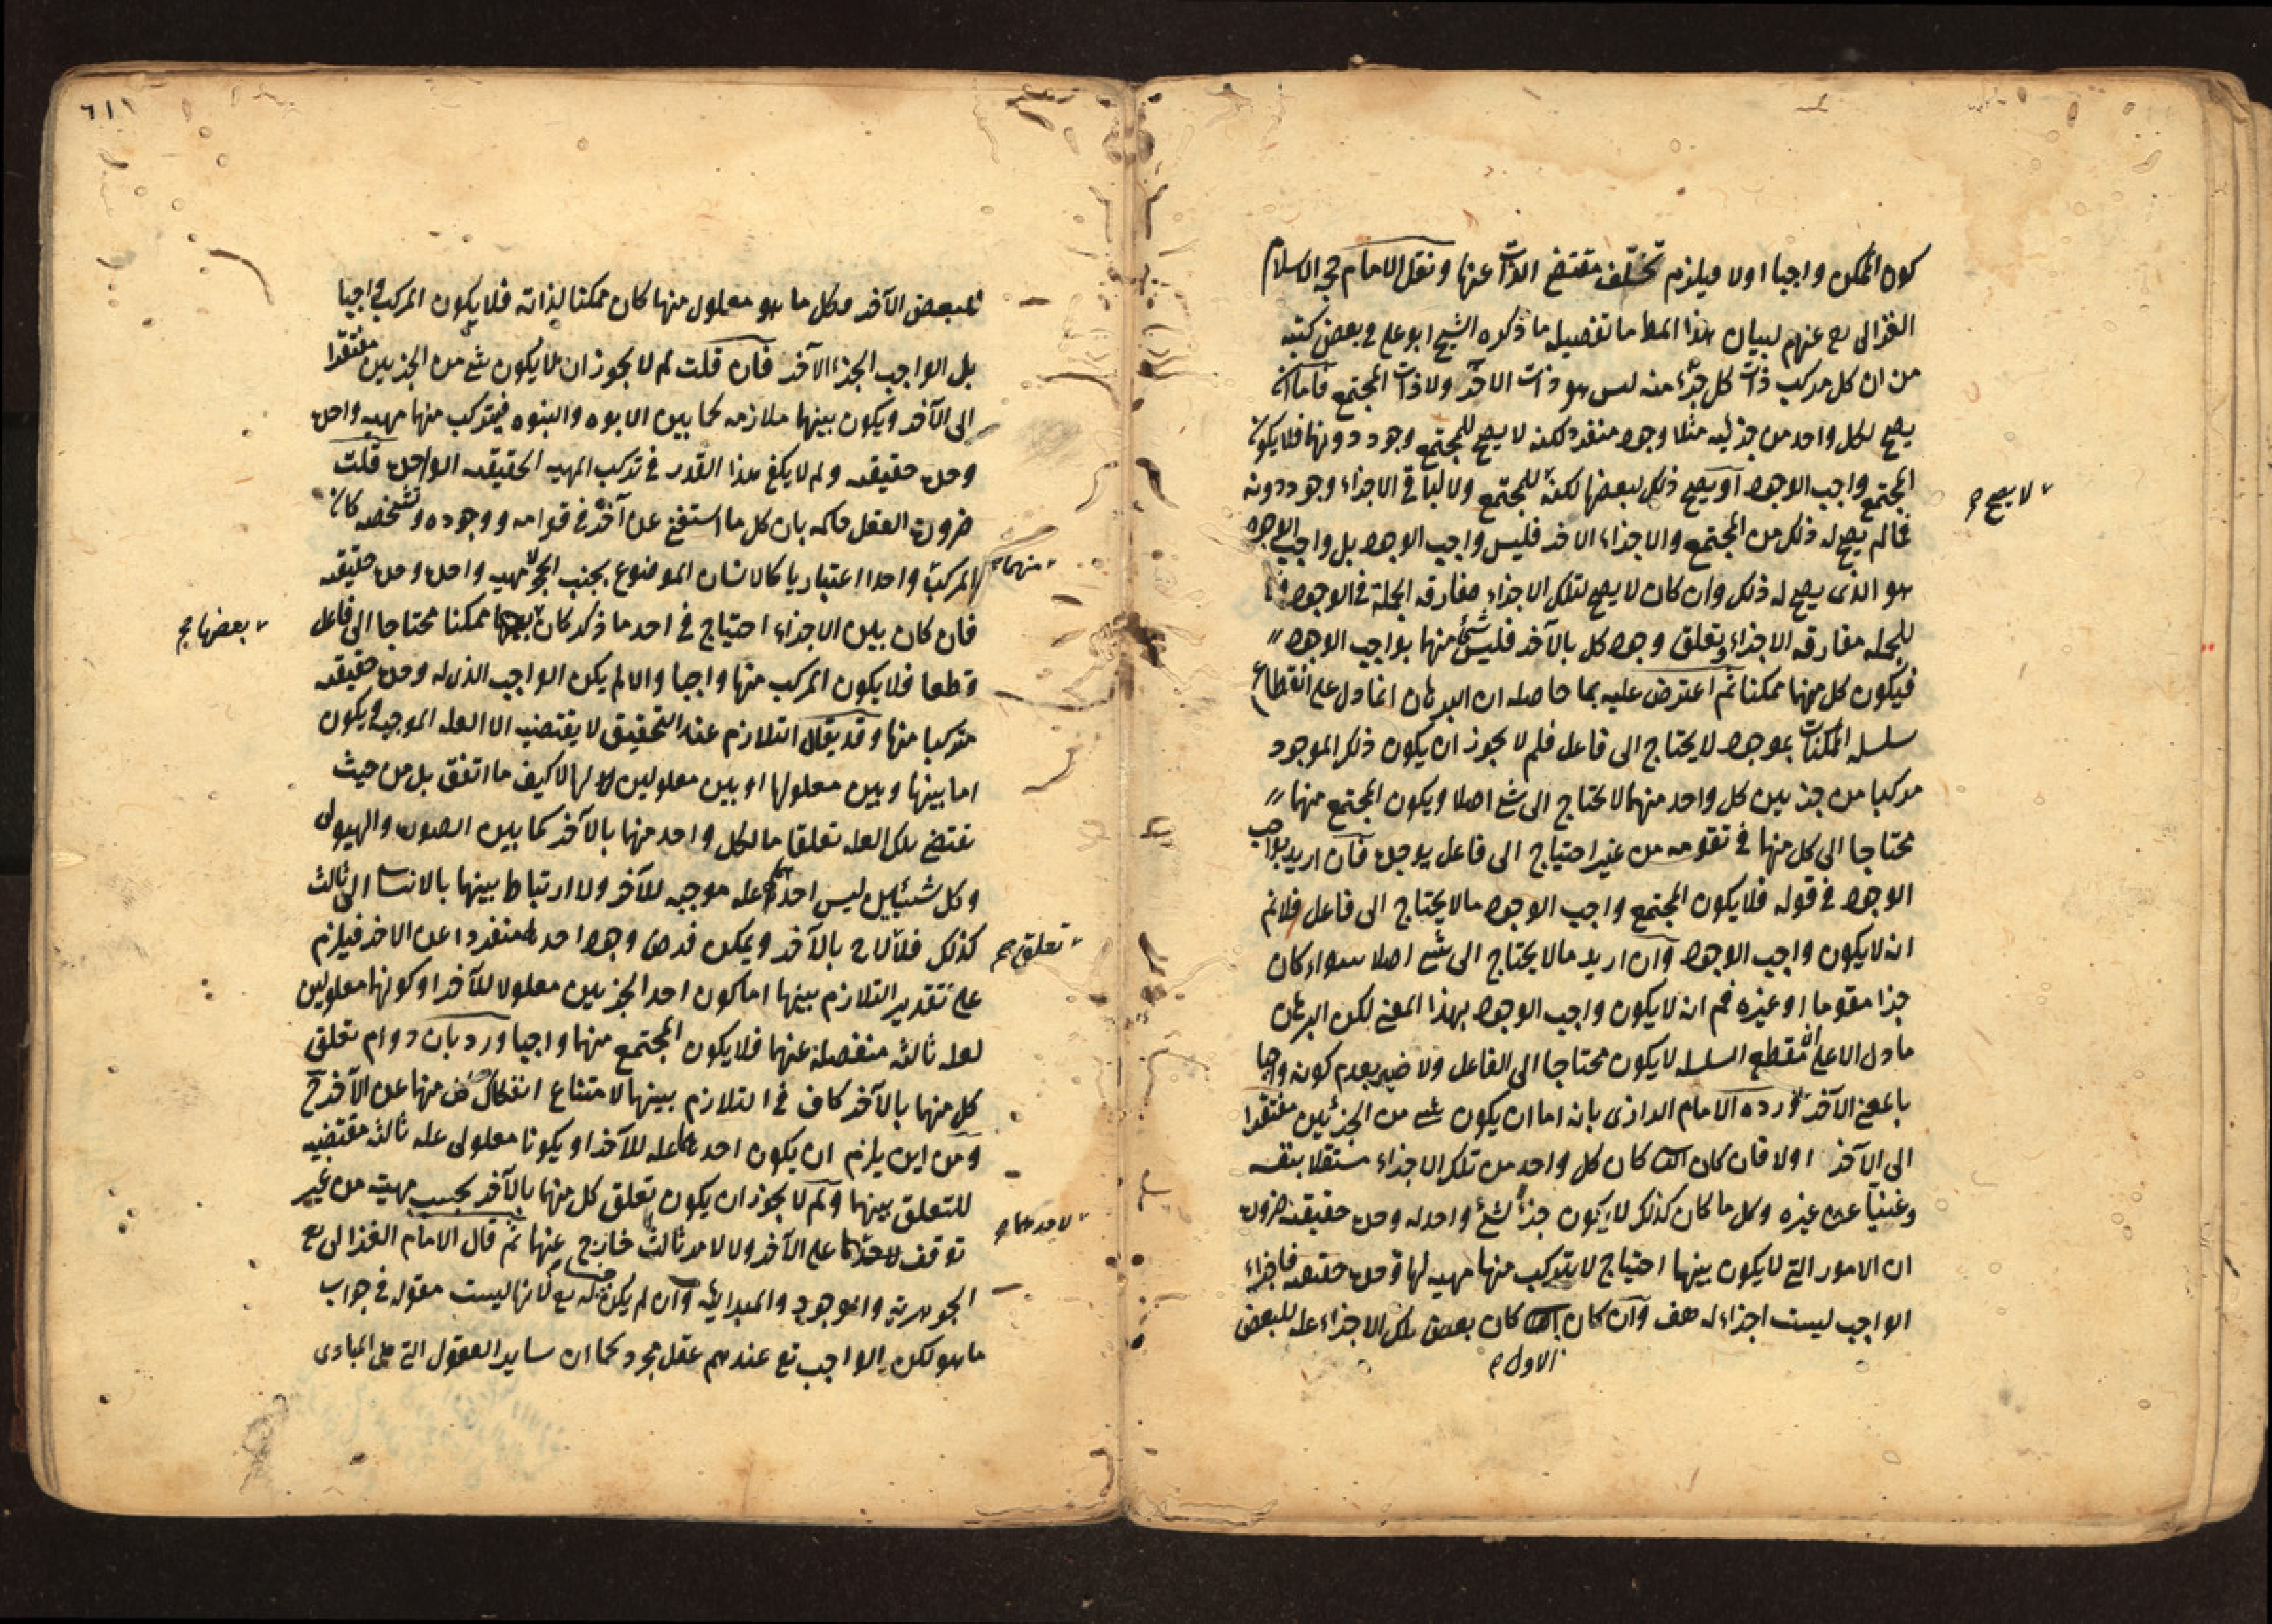 كون الممكن واجبا اولا فيلزم تخلف مقتضى الذات عنها ونقل الامام حجه الاسلام
الغزالى رح عنهم لبيان هذا المط ما تفصيله ما ذكره الشيخ ابو على فى بعض كتبه
من ان كل مركب ذات كل جزء منه ليس هو ذات الاخر ولا ذات المجتمع فاما ان
يصح لكل واحد من جزئيه مثلا وجود منفرد لكنه لا يصح للمجتمع وجود دونها فلا يكون
المجتمع واجب الوجود او يصح ذلك لبعضها لكنه للمجتمع ولا لباقى الاجزاء وجود دونه
لا يصح
فما لم يصح له ذلك من المجتمع والاجزاء الاخر فليس واجب الوجود بل واجب الوجود
هو الذى يصح له ذلك وان كان لا يصح لتلك الاجزاء مفارقه الجملة فى الوجود ولا
للجمله مفارقه الاجزاء وتعلق وجود كل بالآخر فليس شئ منها بواجب الوجود
فيكون كل منهما ممكنا ثم اعترض عليه بما حاصله ان البرهان انما دل على انقطاع
سلسله الممكنات بموجود لا يحتاج الى فاعل فلم لا يجوز ان يكون ذلك الموجود
مركبا من جزءين كل واحد منهما لا يحتاج الى شئ اصلا ويكون المجتمع منهما
محتاجا الى كل منها فى تقومه من غير احتياج الى فاعل يوجده فان اريد بواجب
الوجود فى قوله فلا يكون المجتمع واجب الوجود ما لا يحتاج الى فاعل فلا نم
انه لا يكون واجب الوجود وان اريد ما لا يحتاج الى شئ اصلا سواء كان
جزا مقوما او غيره فم انه لا يكون واجب الوجود بهذا المعنى لكن البرهان
ما دل الا على ان مقطع السلسله لا يكون محتاجا الى الفاعل ولا ضير بعدم كونه واجبا
بالمعنى الآخر ورده الامام الرازى بانه اما ان يكون شئ من الجزئين مفتقرا
الى الآخر اولا فان كان الثانى كان كل واحد من تلك الاجزاء مستقلا بنفسه
وغنيا عن غيره وكل ما كان كذلك لا يكون جزء لشئ واحد له وحده حقيقه ضروره
ان الامور التى لا يكون بينها احتياج لا يتركب منها مهيه لها وحده حقيقه فاجزاء
الواجب ليست اجزاء له هف وان كان كان بعض تلك الاجزاء عله للبعض
الاول
٦١١
للبعض الآخر وكل ما هو معلول منها كان ممكنا لذاته فلا يكون المركب واجبا
بل الواجب الجزء الآخر فان قلت لم لا يجوز ان لا يكون شئ من الجزءين مفتقرا
الى الآخر ويكون بينهما ملازمه كما بين الابوه والبنوه فيتركب منها مهيه واحده
وحده حقيقه ولم لا يكفى هذا القدر فى تركب المهيه الحقيقه الواحده قلت
ضروره العقل حاكمه بان كل ما استغنى عن آخر فى قوامه ووجوده وتشخصه كان
منهما
المركب واحدا اعتباريا كالانسان الموضوع بجنب الحجر لا مهيه واحده وحده حقيقه
فان كان بين الاجزاء احتياج فى احد ما ذكر كان ممكنا محتاجا الى فاعل
بعضها
قطعا فلا يكون المركب منها واجبا والا لم يكن الواجب الذى له وحده حقيقه
متركبا منها وقد يقال التلازم عند التحقيق لا يقتضيه الا العله الموجبه ويكون
اما بينها وبين معلولها او بين معلولين لها لا كيف ما اتفق بل من حيث
تقتضى تلك العله تعلقا ما لكل واحد منها بالآخر كما بين الصوره والهيولى
وكل شيئين ليس احدهما عله موجبه للآخر ولا ارتباط بينها بالانتساب الى ثالث
كذلك فلا بالآخر ويمكن فرض وجود احدهما منفردا عن الاخر فيلزم
تعلق
على تقدير التلازم بينها اما كون احد الجزءين معلولا للآخر او كونها معلولين
لعله ثالثه منفصله عنهما فلا يكون المجتمع منها واجبا ورد بان دوام تعلق
كل منها بالآخر كاف فى التلازم بينها لامتناع انفكاك كل منها عن الآخر ح
ومن اين يلزم ان يكون احدهما عله للآخر او يكونا معلولى عله ثالثه مقتضيه
للتعلق بينها ولم لا يجوز ان يكون تعلق كل منها بالآخر بحسب مهيته من غير
توقف على الآخر ولا لامر ثالث خارج عنها ثم قال الامام الغزالى رح
لاحدهما
الجوهريه والموجود والمبدائيه وان لم يكن جنسا له تع لانها ليست مقوله فى جواب
ما هو لكن الواجب تع عندهم عقل مجرد كما ان ساير العقول التى هى المبادى